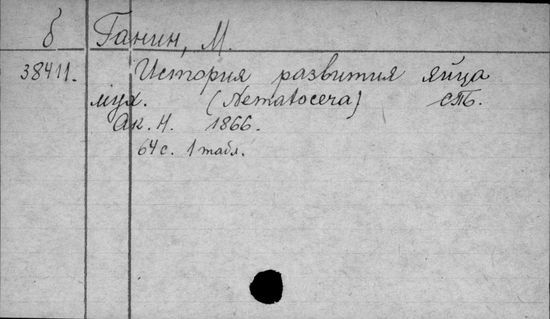 б Ганин, М.
38411. История развития яйца
мух. (Nematocera) СПБ.
Ак. Н. 1866.
64 с. 1 табл.